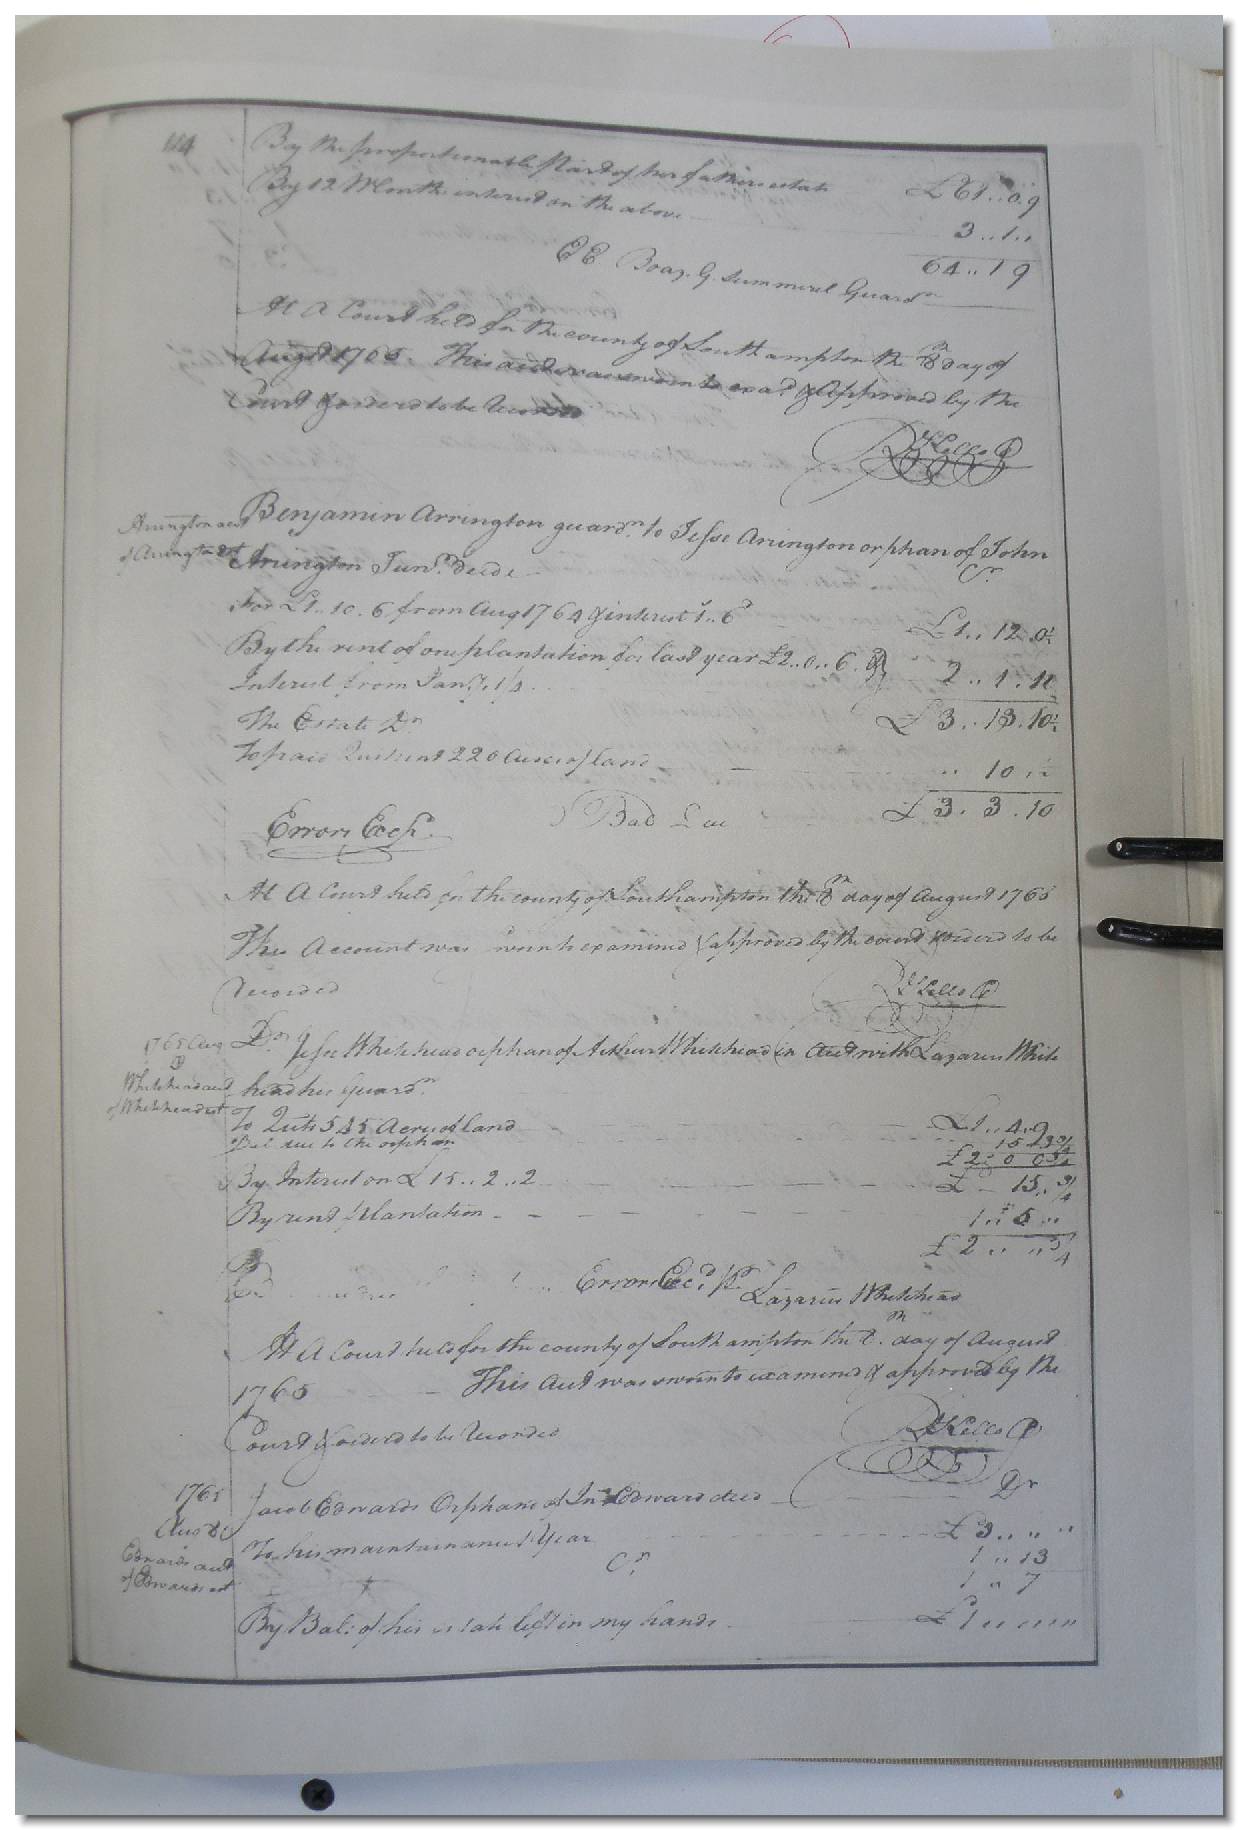 114
By the proportionable part of her fathers estate £61..0.9
By 12 Months interest on the above 3..1..
64..1 9
EE Boaz. G. Summerel Guardn
At A Court held for the county of Southampton the 8th day of
August 1765. This acct was sworn to exad & Approved by the
Court & orderd to be Recorded
R Kello C
Arrington acct
of Arrington est
Benjamin Arrington guardn to Jesse Arington orphan of John
Arington Junr decd Cr
For £1..10.6 from Aug 1764 & interest 1..6 £1..12.0
By the rent of one plantation for last year £2..0..6. &
Interest from Jany. 1/4 2..1.11
£3..13.10
The Estate Dr
To paid Quitrent 220 Acres of land .. 10
Bal Due £3.3.10
Errors Except.
At A Court held for the county of Southampton the 8th day of August 1765
This Account was sworn to examined & approved by the court & orderd to be
recorded
R Kello C
1765 Aug 8
Whitehead acct
of Whitehead est
Dr Jesse Whitehead orphan of Arthur Whitehead in Acct with Lazarus White
head his guardn
To Quits 545 Acres of land £1..4.9
Bal due to the orphan 15 3 3/4
£2: 0 0 3/4
By Interest on £15..2..2 £ - 15.. 3/4
By rent plantation 1..5..
£2 .. .. 3/4
Errors Eccd Pr Lazarus Whitehead
At A Court held for the county of Southampton the 8th day of August
1765 This Acct was sworn to examined & approved by the
Court & orderd to be Recorded
R Kello C
1765
Aug 8
Edwards acct
of Edwards est
Jacob Edwards Orphane of Jno Edward decd Dr
To his maintainance 1 Year £3.. .. ..
Cr 1..13
1..7
By Bal: of his estate left in my hands £1